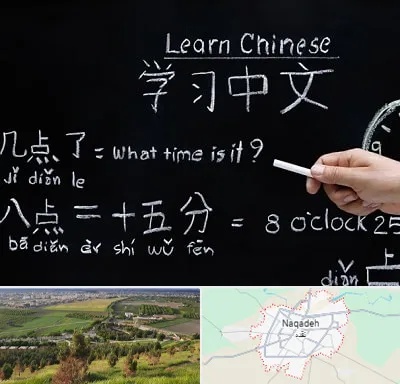 Learn Chinese
学习中文
9
几点了 = what time is it?
Jǐ diǎn le
八点二十五分 = 8 o'clock 25
bā diǎn èr shí wǔ fēn
diǎn
Naqadeh
نقده